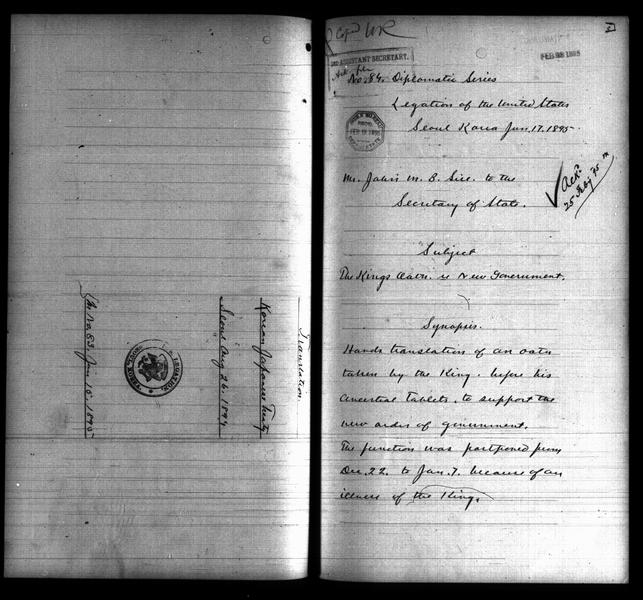 Translation.
Korean Japanese Treaty
Seoul Aug 26. 1894
No. 83. Jan 15. 1895
Cop'd WR
2ND ASSISTANT SECRETARY.
FEB 28 1895
No. 84. Diplomatic Series
Legation of the United States
Seoul Korea Jan. 17. 1895.
FEB 19 1895
Mr. John M. B. Sill to the
Secretary of State.
Ack'd
25 Feby 95
Subject
The Kings Oath. is New Government.
Synopsis.
Hands translation of an oath
taken by the King. before his
ancestral tablets. to support the
new order of government.
The function was postponed from
Dec. 22. to Jan. 7. because of an
illness of the King.